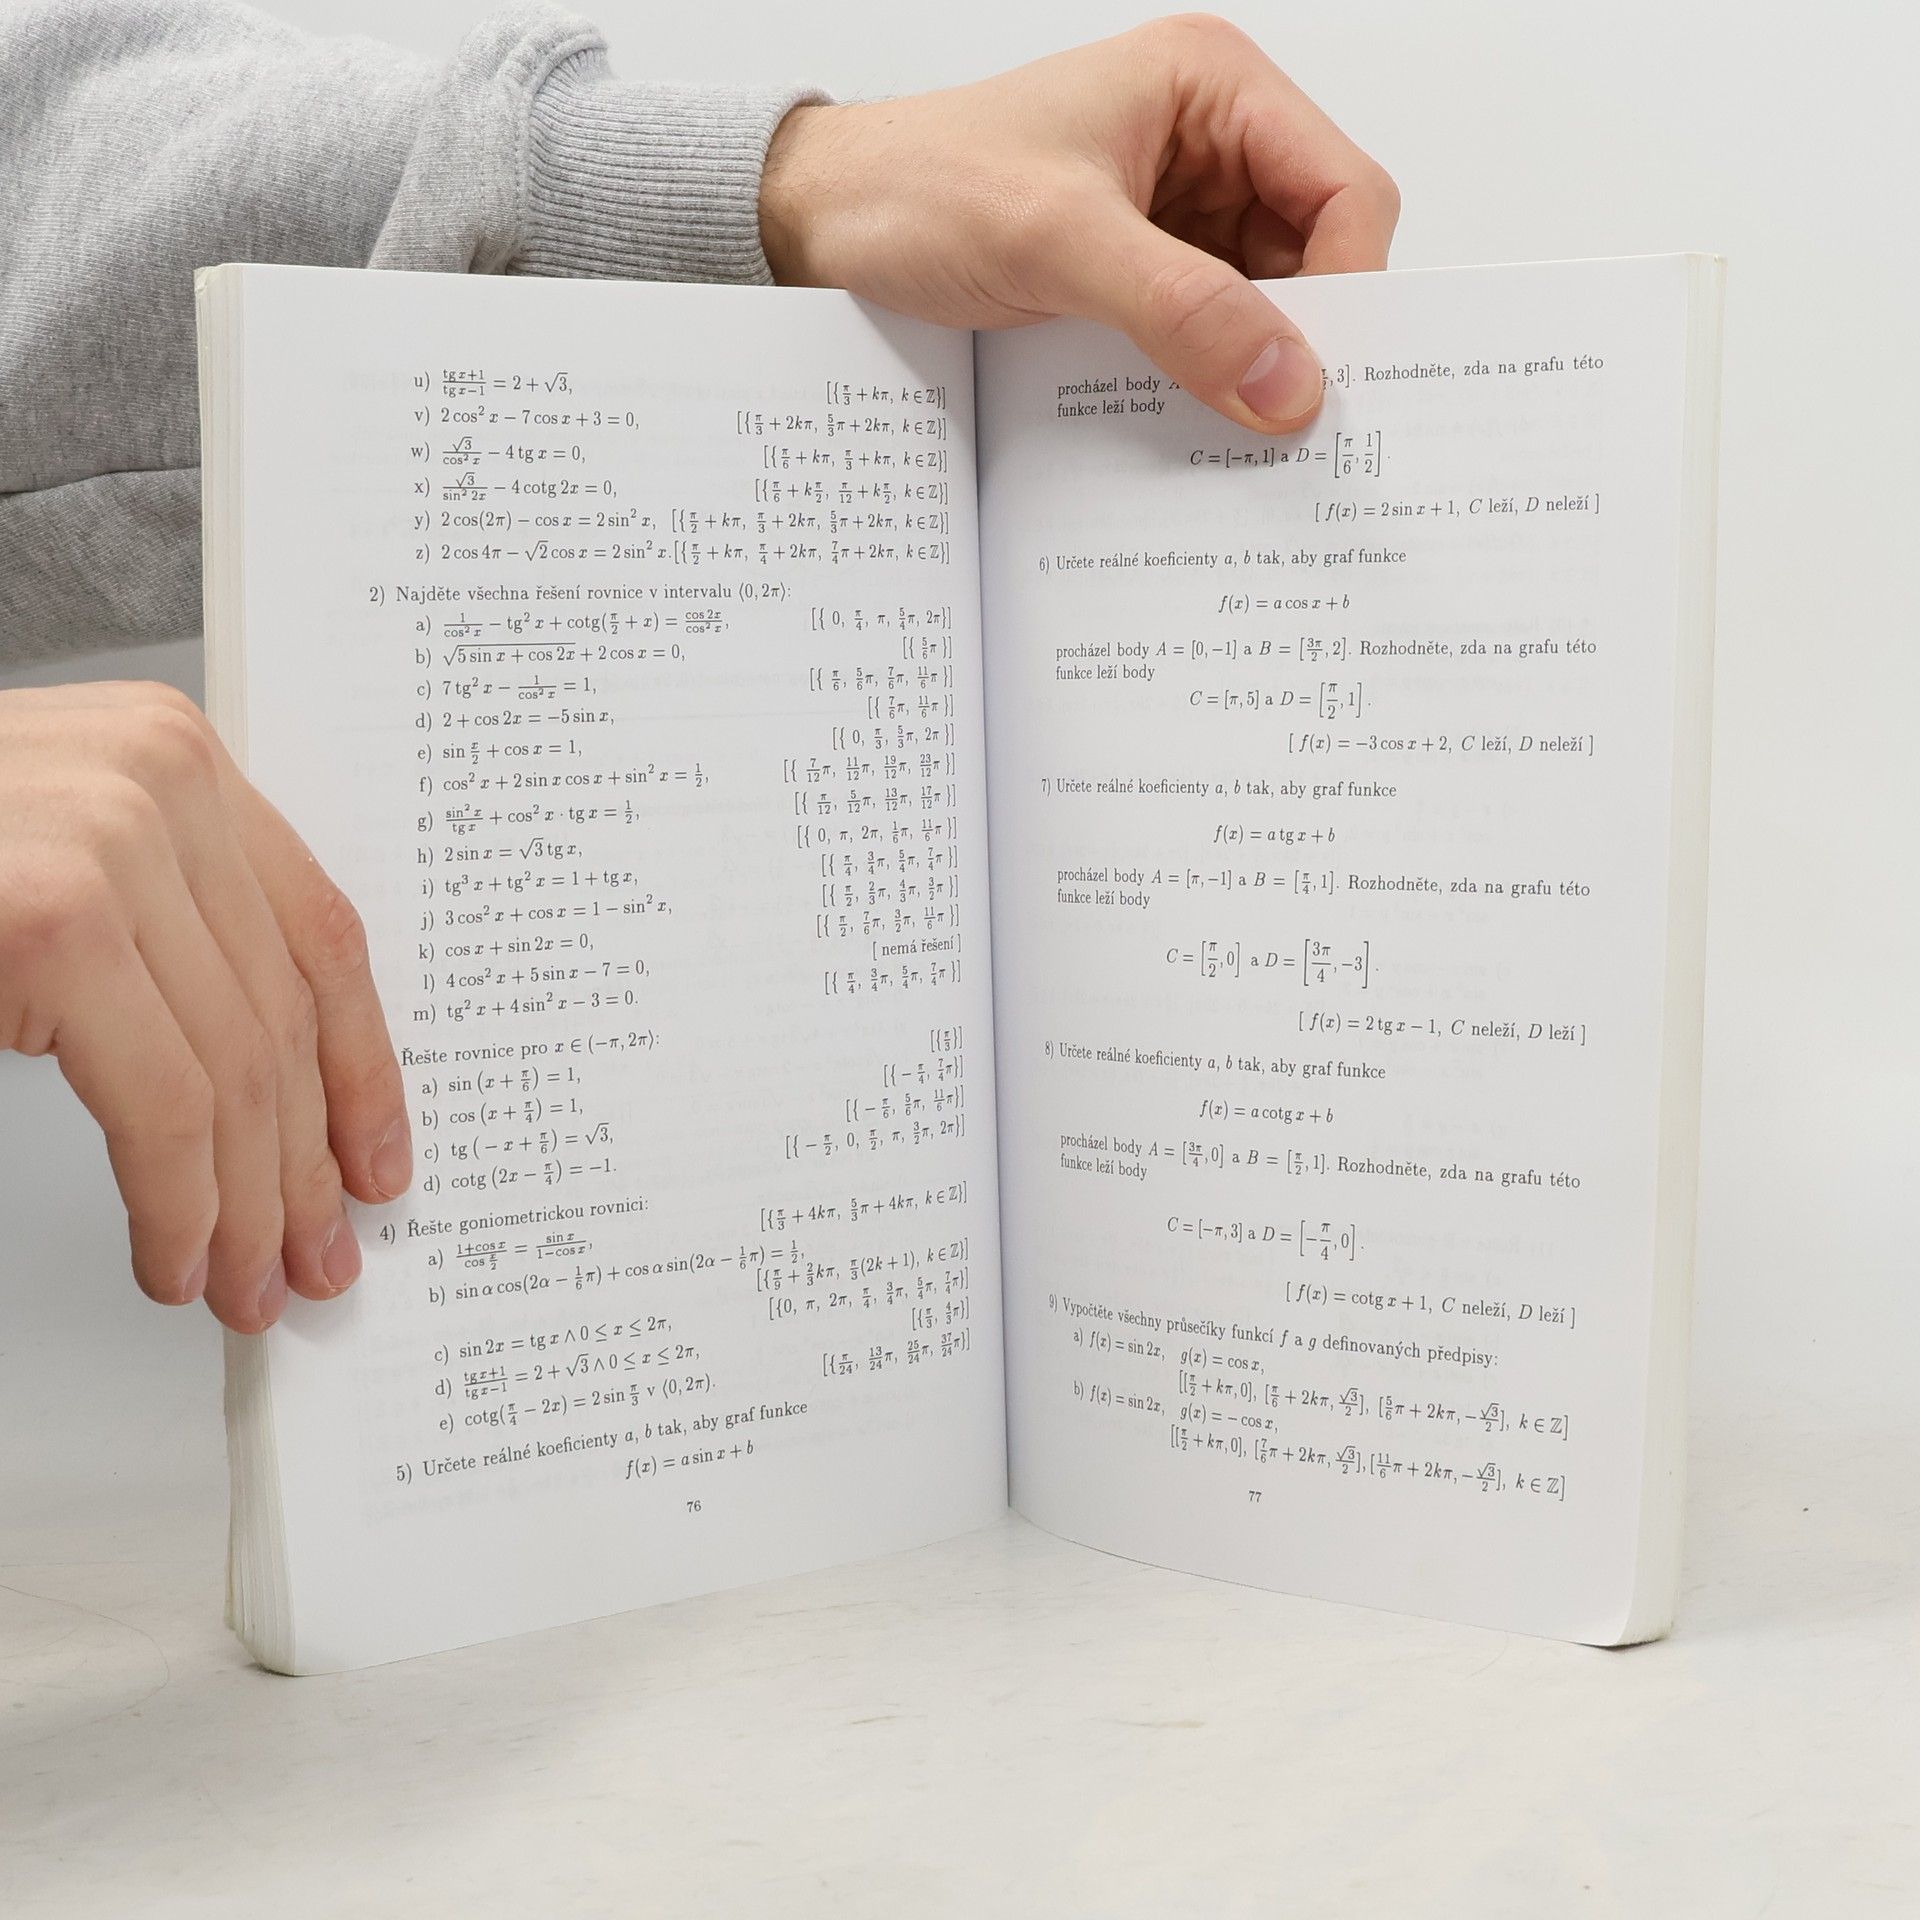 u) \frac{tg x+1}{tg x−1} = 2 + √3, [{π/3 + kπ, k ∈ ℤ}]
v) 2 cos² x − 7 cos x + 3 = 0, [{π/3 + 2kπ, 5/3π + 2kπ, k ∈ ℤ}]
w) √3/cos² x − 4 tg x = 0, [{π/6 + kπ, π/3 + kπ, k ∈ ℤ}]
x) √3/sin² 2x − 4 cotg 2x = 0, [{π/6 + kπ/2, π/12 + kπ/2, k ∈ ℤ}]
y) 2 cos(2π) − cos x = 2 sin² x, [{π/2 + kπ, π/3 + 2kπ, 5/3π + 2kπ, k ∈ ℤ}]
z) 2 cos 4π − √2 cos x = 2 sin² x. [{π/2 + kπ, π/4 + 2kπ, 7/4π + 2kπ, k ∈ ℤ}]
2) Najděte všechna řešení rovnice v intervalu ⟨0, 2π⟩:
a) 1/cos² x − tg² x + cotg(π/2 + x) = cos 2x/cos² x, [{ 0, π/4, π, 5/4π, 2π}]
b) √(5 sin x + cos 2x) + 2 cos x = 0, [{ 5/6π }]
c) 7 tg² x − 1/cos² x = 1, [{ π/6, 5/6π, 7/6π, 11/6π }]
d) 2 + cos 2x = −5 sin x, [{ 7/6π, 11/6π }]
e) sin x/2 + cos x = 1, [{ 0, π/3, 5/3π, 2π }]
f) cos² x + 2 sin x cos x + sin² x = 1/2, [{ 7/12π, 11/12π, 19/12π, 23/12π }]
g) sin² x/tg x + cos² x · tg x = 1/2, [{ π/12, 5/12π, 13/12π, 17/12π }]
h) 2 sin x = √3 tg x, [{ 0, π, 2π, 1/6π, 11/6π }]
i) tg³ x + tg² x = 1 + tg x, [{ π/4, 3/4π, 5/4π, 7/4π }]
j) 3 cos² x + cos x = 1 − sin² x, [{ π/2, 2/3π, 4/3π, 3/2π }]
k) cos x + sin 2x = 0, [{ π/2, 7/6π, 3/2π, 11/6π }]
l) 4 cos² x + 5 sin x − 7 = 0, [ nemá řešení ]
m) tg² x + 4 sin² x − 3 = 0. [{ π/4, 3/4π, 5/4π, 7/4π }]
Řešte rovnice pro x ∈ (−π, 2π⟩:
a) sin (x + π/6) = 1, [{π/3}]
b) cos (x + π/4) = 1, [{ − π/4, 7/4π}]
c) tg ( − x + π/6) = √3, [{ − π/6, 5/6π, 11/6π}]
d) cotg (2x − π/4) = −1. [{ − π/2, 0, π/2, π, 3/2π, 2π}]
4) Řešte goniometrickou rovnici:
a) 1+cos x/cos x/2 = sin x/1−cos x, [{π/3 + 4kπ, 5/3π + 4kπ, k ∈ ℤ}]
b) sin α cos(2α − 1/6π) + cos α sin(2α − 1/6π) = 1/2,
[{π/9 + 2/3kπ, π/3(2k + 1), k ∈ ℤ}]
c) sin 2x = tg x ∧ 0 ≤ x ≤ 2π, [{0, π, 2π, π/4, 3/4π, 5/4π, 7/4π}]
d) tg x+1/tg x−1 = 2 + √3 ∧ 0 ≤ x ≤ 2π, [{π/3, 4/3π}]
e) cotg(π/4 − 2x) = 2 sin π/3 v ⟨0, 2π⟩. [{π/24, 13/24π, 25/24π, 37/24π}]
5) Určete reálné koeficienty a, b tak, aby graf funkce
f(x) = a sin x + b
76
procházel body , 3]. Rozhodněte, zda na grafu této
funkce leží body
C = [−π, 1] a D = [π/6, 1/2].
[ f(x) = 2 sin x + 1, C leží, D neleží ]
6) Určete reálné koeficienty a, b tak, aby graf funkce
f(x) = a cos x + b
procházel body A = [0, −1] a B = [3π/2, 2]. Rozhodněte, zda na grafu této
funkce leží body
C = [π, 5] a D = [π/2, 1].
[ f(x) = −3 cos x + 2, C leží, D neleží ]
7) Určete reálné koeficienty a, b tak, aby graf funkce
f(x) = a tg x + b
procházel body A = [π, −1] a B = [π/4, 1]. Rozhodněte, zda na grafu této
funkce leží body
C = [π/2, 0] a D = [3π/4, −3].
[ f(x) = 2 tg x − 1, C neleží, D leží ]
8) Určete reálné koeficienty a, b tak, aby graf funkce
f(x) = a cotg x + b
procházel body A = [3π/4, 0] a B = [π/2, 1]. Rozhodněte, zda na grafu této
funkce leží body
C = [−π, 3] a D = [−π/4, 0].
[ f(x) = cotg x + 1, C neleží, D leží ]
9) Vypočtěte všechny průsečíky funkcí f a g definovaných předpisy:
a) f(x) = sin 2x, g(x) = cos x,
[[π/2 + kπ, 0], [π/6 + 2kπ, √3/2], [5/6π + 2kπ, −√3/2], k ∈ ℤ]
b) f(x) = sin 2x, g(x) = − cos x,
[[π/2 + kπ, 0], [7/6π + 2kπ, √3/2], [11/6π + 2kπ, −√3/2], k ∈ ℤ]
77